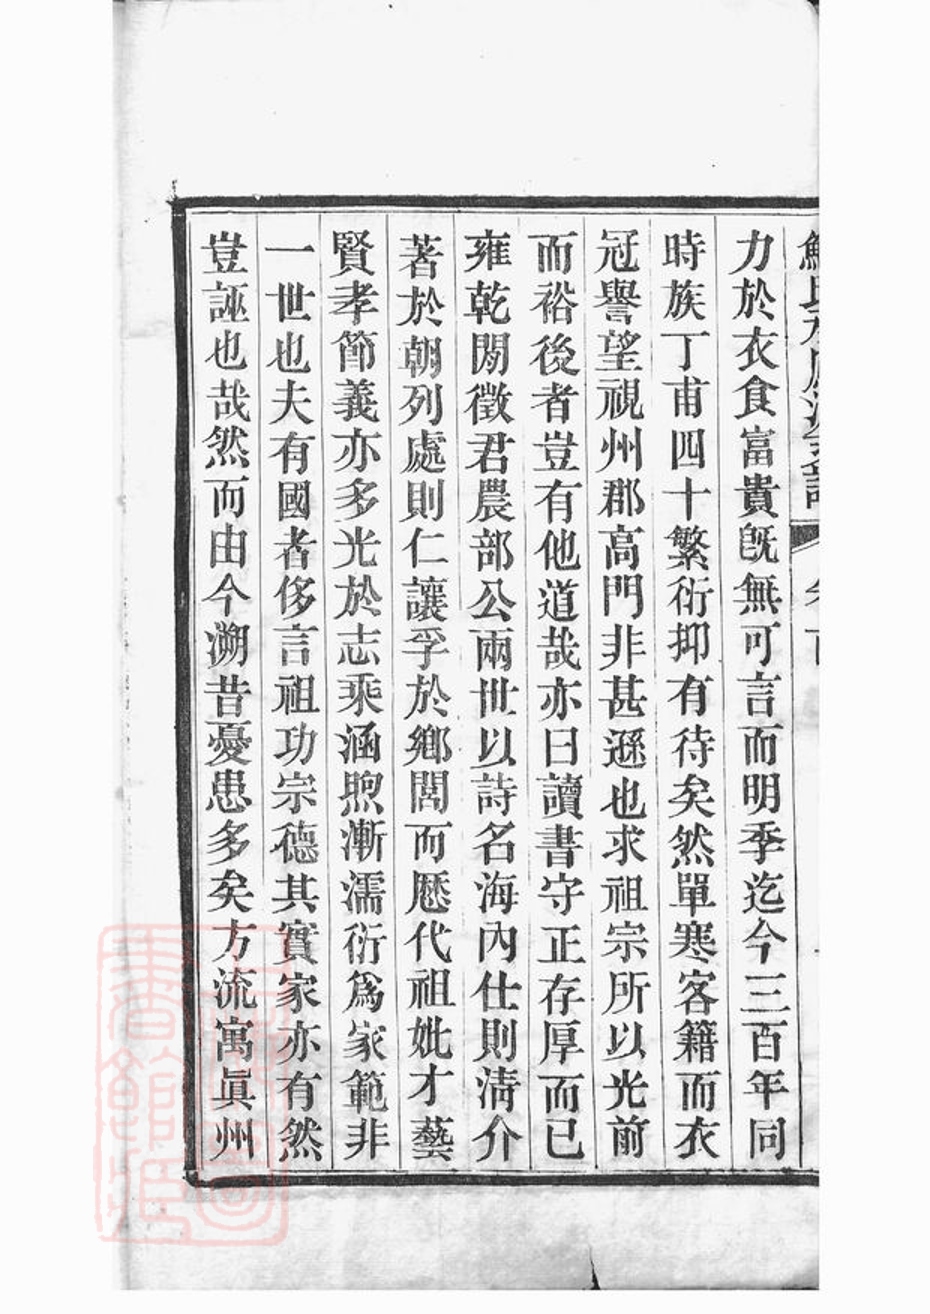 力於衣食富貴旣無可言而明季迄今三百年同
時族丁甫四十繁衍抑有待矣然單寒客籍而衣
冠譽望視州郡高門非甚遜也求祖宗所以光前
而裕後者豈有他道哉亦曰讀書守正存厚而已
雍乾閒徵君農部公兩世以詩名海內仕則淸介
著於朝列處則仁讓孚於鄕閭而歷代祖妣才藝
賢孝節義亦多光於志乘涵煦漸濡衍爲家範非
一世也夫有國者侈言祖功宗德其實家亦有然
豈誣也哉然而由今溯昔憂患多矣方流寓眞州